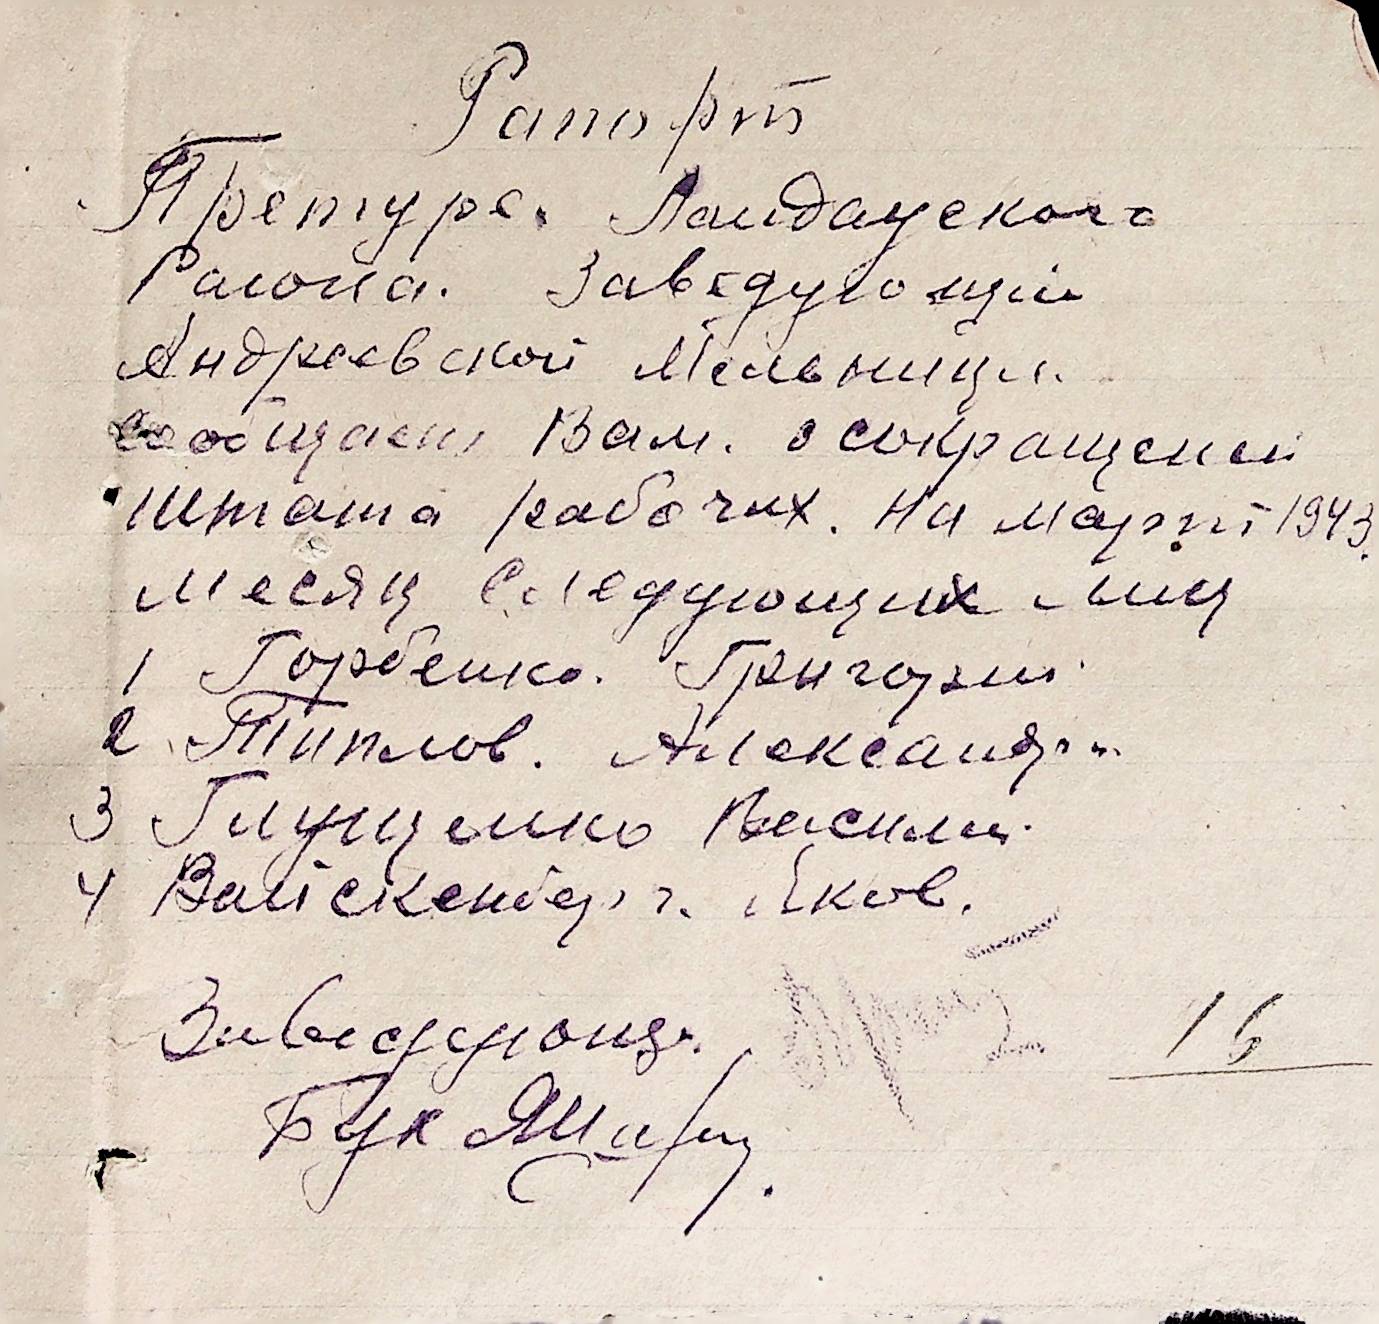 Рапорт
Претуре. Ландауского
Раиона. Заведующий
Андреевской Мельницы.
сообщает Вам. о сокращений
штата рабочих. На март 1943.
месяц Следующих лиц
1 Горбенко. Григорий
2 Титлов. Александр
3 Глущенко Василий
4 Вайскенберг. Яков.
Заведующ.
16
Бук